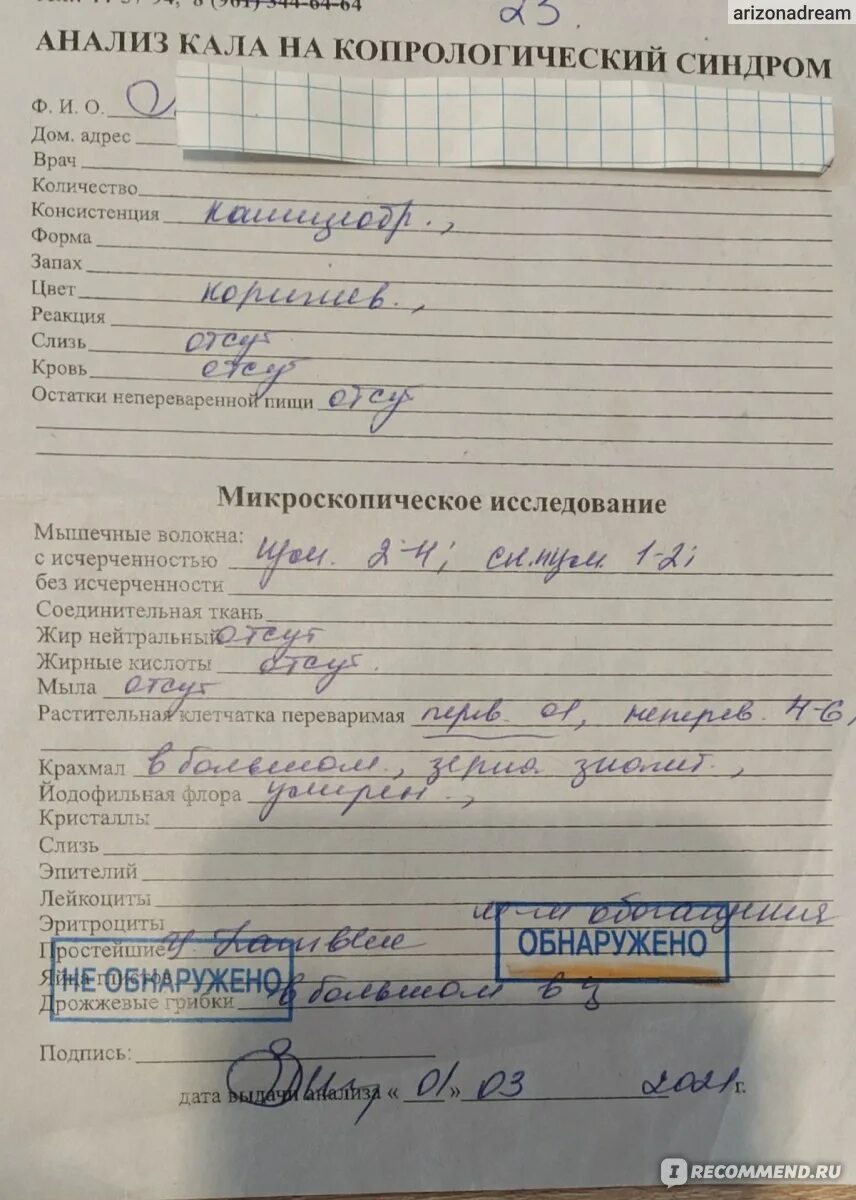 arizonadream
8 (961) 344-64-64
23.
АНАЛИЗ КАЛА НА КОПРОЛОГИЧЕСКИЙ СИНДРОМ
Ф. И. О.
Дом. адрес
Врач
Количество
Консистенция кашицеобр.,
Форма
Запах
Цвет коричнев.,
Реакция
Слизь отсут
Кровь отсут
Остатки непереваренной пищи отсут
Микроскопическое исследование
Мышечные волокна:
с исчерченностью изм. 2-4; сл.изм. 1-2;
без исчерченности
Соединительная ткань
Жир нейтральный отсут
Жирные кислоты отсут.
Мыла отсут
Растительная клетчатка переваримая перев. 01, неперев. 4-6,
Крахмал в большом, зерна
Йодофильная флора умерен.,
Кристаллы
Слизь
Эпителий
Лейкоциты
Эритроциты обогащения
Простейшие ОБНАРУЖЕНО
Яйца глистов НЕ ОБНАРУЖЕНО
Дрожжевые грибки в большом
Подпись:
дата выдачи анализа « 01 » 03 2021 г.
IRECOMMEND.RU